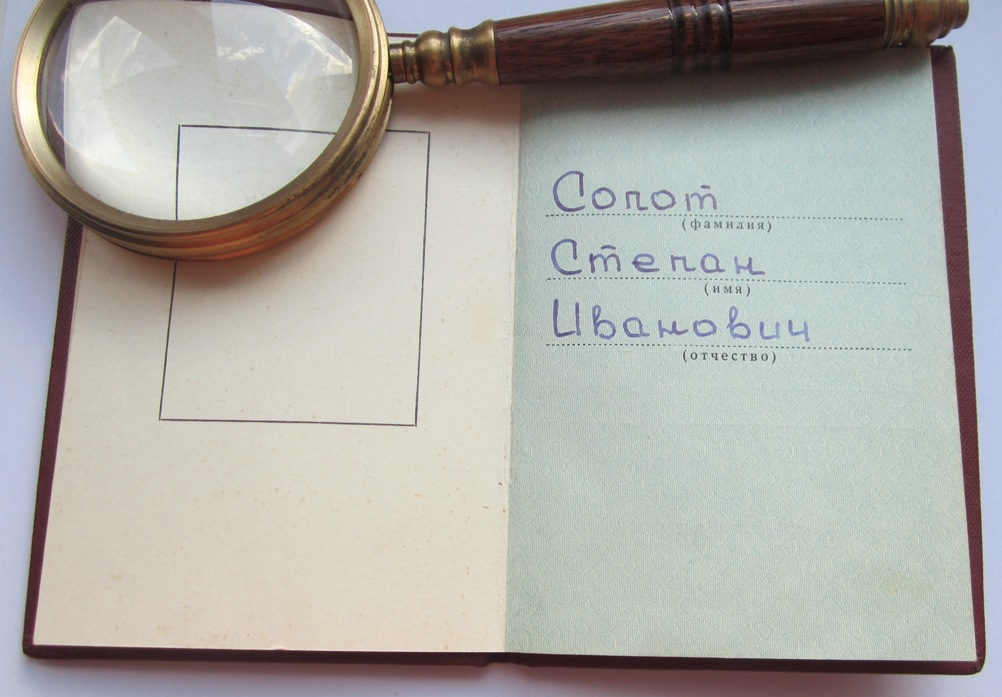 Сопот
(фамилия)
Степан
(имя)
Иванович
(отчество)